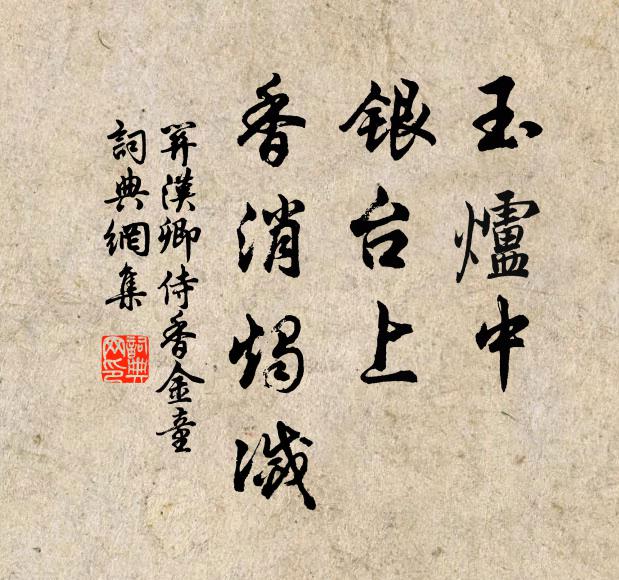 玉爐中
銀台上
香消燭滅
關漢卿侍香金童
詞典網集
詞典网印